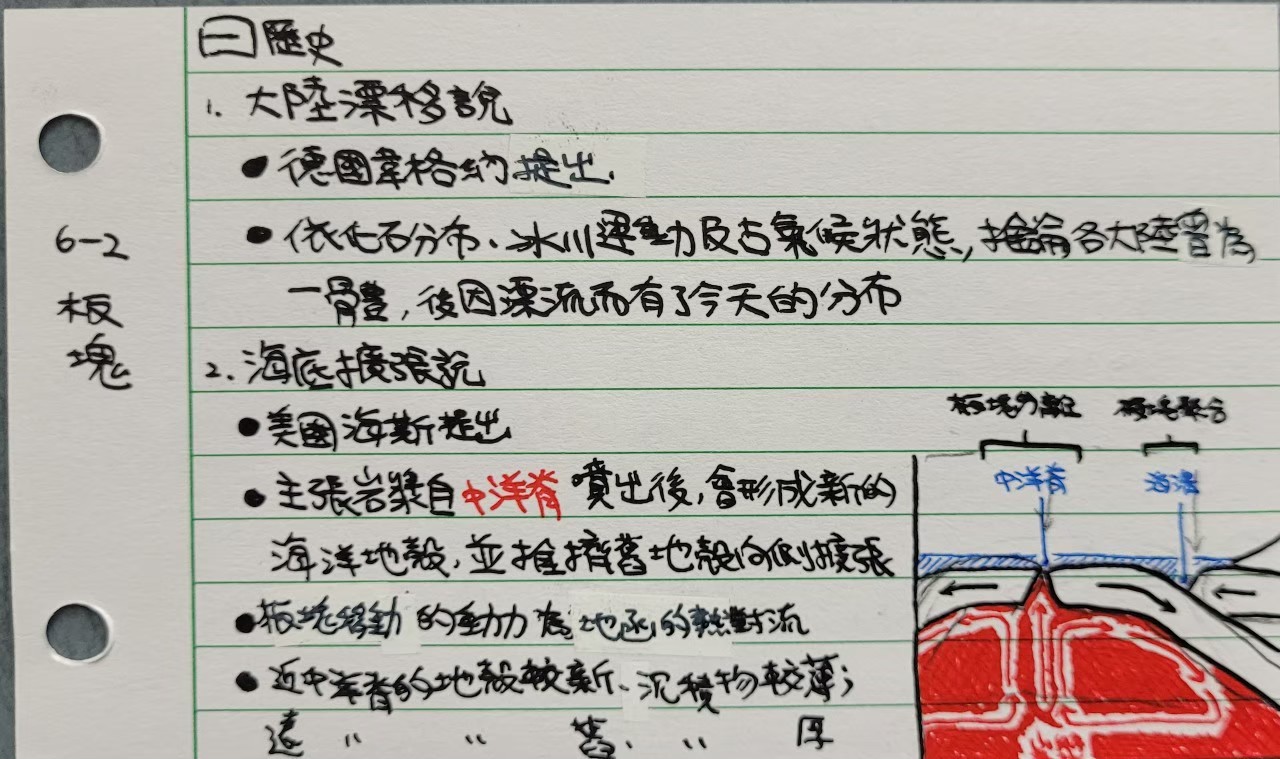 6-2
板
塊
㊀歷史
1. 大陸漂移說
●德國韋格納提出.
●依化石分布、冰川運動及古氣候狀態,推論各大陸曾為
一體,後因漂流而有了今天的分布
2. 海底擴張說
●美國海斯提出
●主張岩漿自中洋脊噴出後,會形成新的
海洋地殼,並推擠舊地殼向側擴張
●板塊移動的動力為地函的熱對流
●近中洋脊的地殼較新、沉積物較薄;
遠 〃 〃 舊、〃 厚
板塊分離 板塊聚合
中洋脊 海溝